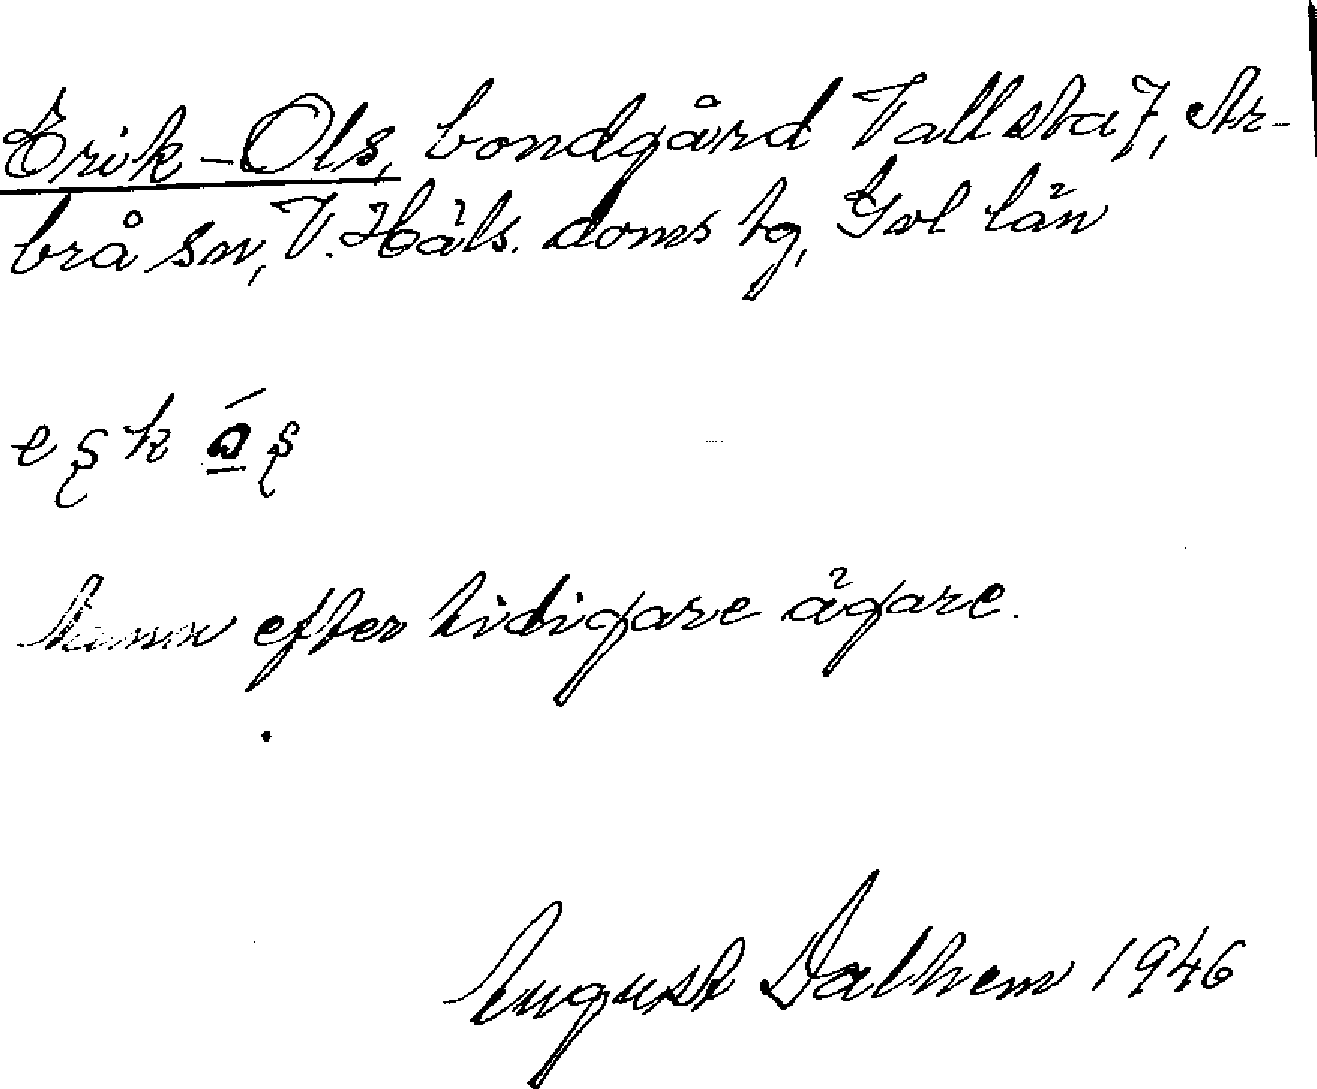 Erik-Ols, bondgård Vallsta 7, Ar-
brå sn, V. Häls. doms tg, Gvl län
eʂk ó̲ʂ
Namn efter tidigare ägare.
August Dalhem 1946